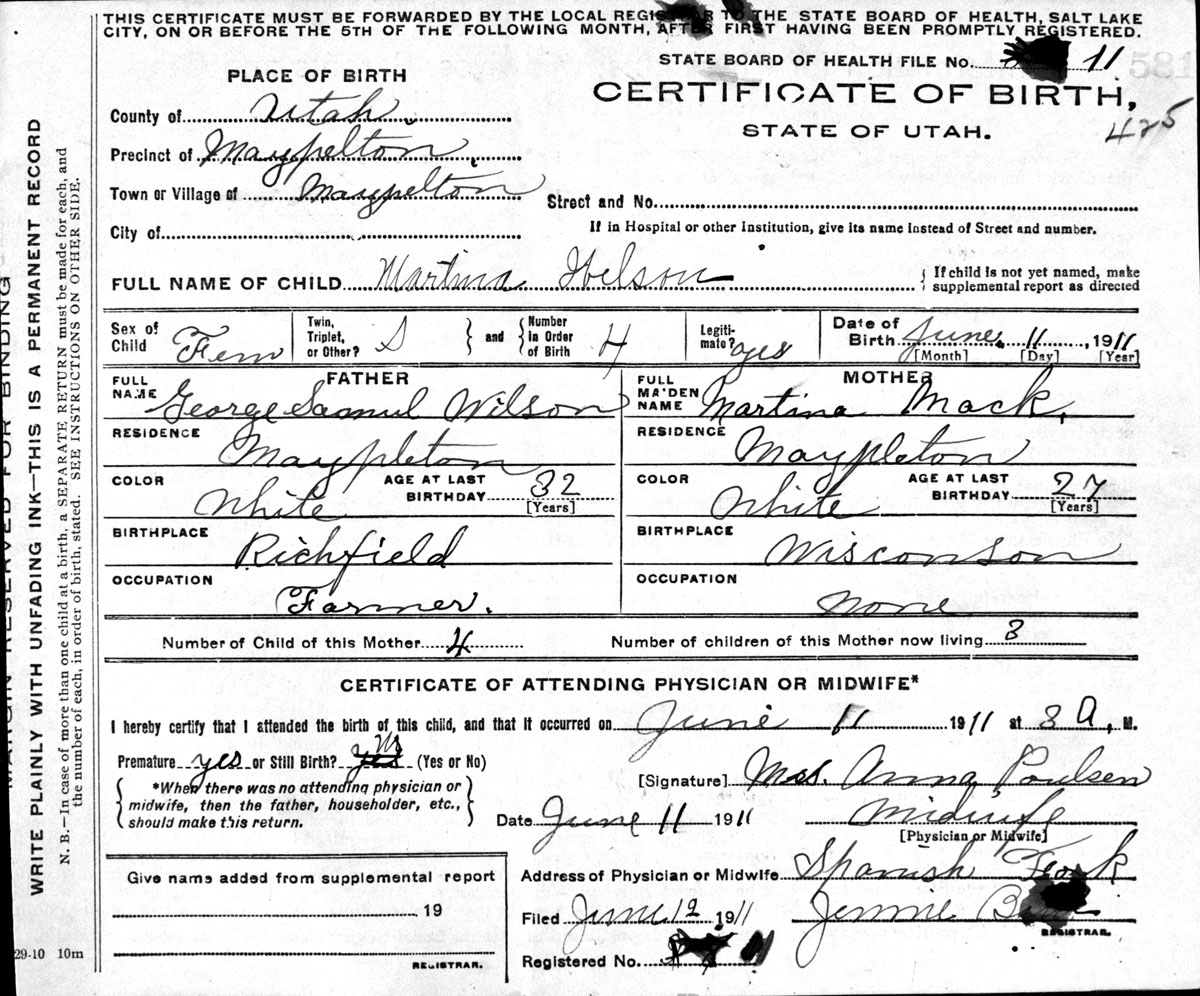 THIS CERTIFICATE MUST BE FORWARDED BY THE LOCAL REGISTRAR TO THE STATE BOARD OF HEALTH, SALT LAKE
CITY, ON OR BEFORE THE 5TH OF THE FOLLOWING MONTH, AFTER FIRST HAVING BEEN PROMPTLY REGISTERED.
STATE BOARD OF HEALTH FILE No. 11
581
PLACE OF BIRTH
CERTIFICATE OF BIRTH,
STATE OF UTAH.
425
County of Utah
Precinct of Maypelton
Town or Village of Maypelton
Street and No.
City of
If in Hospital or other Institution, give its name instead of Street and number.
FULL NAME OF CHILD Martina Wilson
{ If child is not yet named, make
supplemental report as directed
Sex of Child Fem
Twin, Triplet, or Other? S } and { Number in Order of Birth 4
Legitimate? yes
Date of Birth June 11, 1911
[Month] [Day] [Year]
FATHER
FULL NAME George Samul Wilson
RESIDENCE Maypleton
COLOR White AGE AT LAST BIRTHDAY 32 [Years]
BIRTHPLACE Richfield
OCCUPATION Farmer.
MOTHER
FULL MAIDEN NAME Martina Mack,
RESIDENCE Maypleton
COLOR White AGE AT LAST BIRTHDAY 27 [Years]
BIRTHPLACE Wisconson
OCCUPATION None
Number of Child of this Mother 4 Number of children of this Mother now living 3
CERTIFICATE OF ATTENDING PHYSICIAN OR MIDWIFE*
I hereby certify that I attended the birth of this child, and that it occurred on June 11 1911 at 3 A, M.
Premature yes or Still Birth? yes No (Yes or No)
[Signature] Mrs. Anna Poulsen
{ *When there was no attending physician or
midwife, then the father, householder, etc.,
should make this return. }
Date June 11 1911 Midwife
[Physician or Midwife]
Give name added from supplemental report
19
REGISTRAR.
Address of Physician or Midwife Spanish Fork
Filed June 12 1911 Jennie
REGISTRAR.
Registered No.
29-10 10m
MARGIN RESERVED FOR BINDING
WRITE PLAINLY WITH UNFADING INK—THIS IS A PERMANENT RECORD
N. B.—In case of more than one child at a birth, a SEPARATE RETURN must be made for each, and
the number of each, in order of birth, stated. SEE INSTRUCTIONS ON OTHER SIDE.